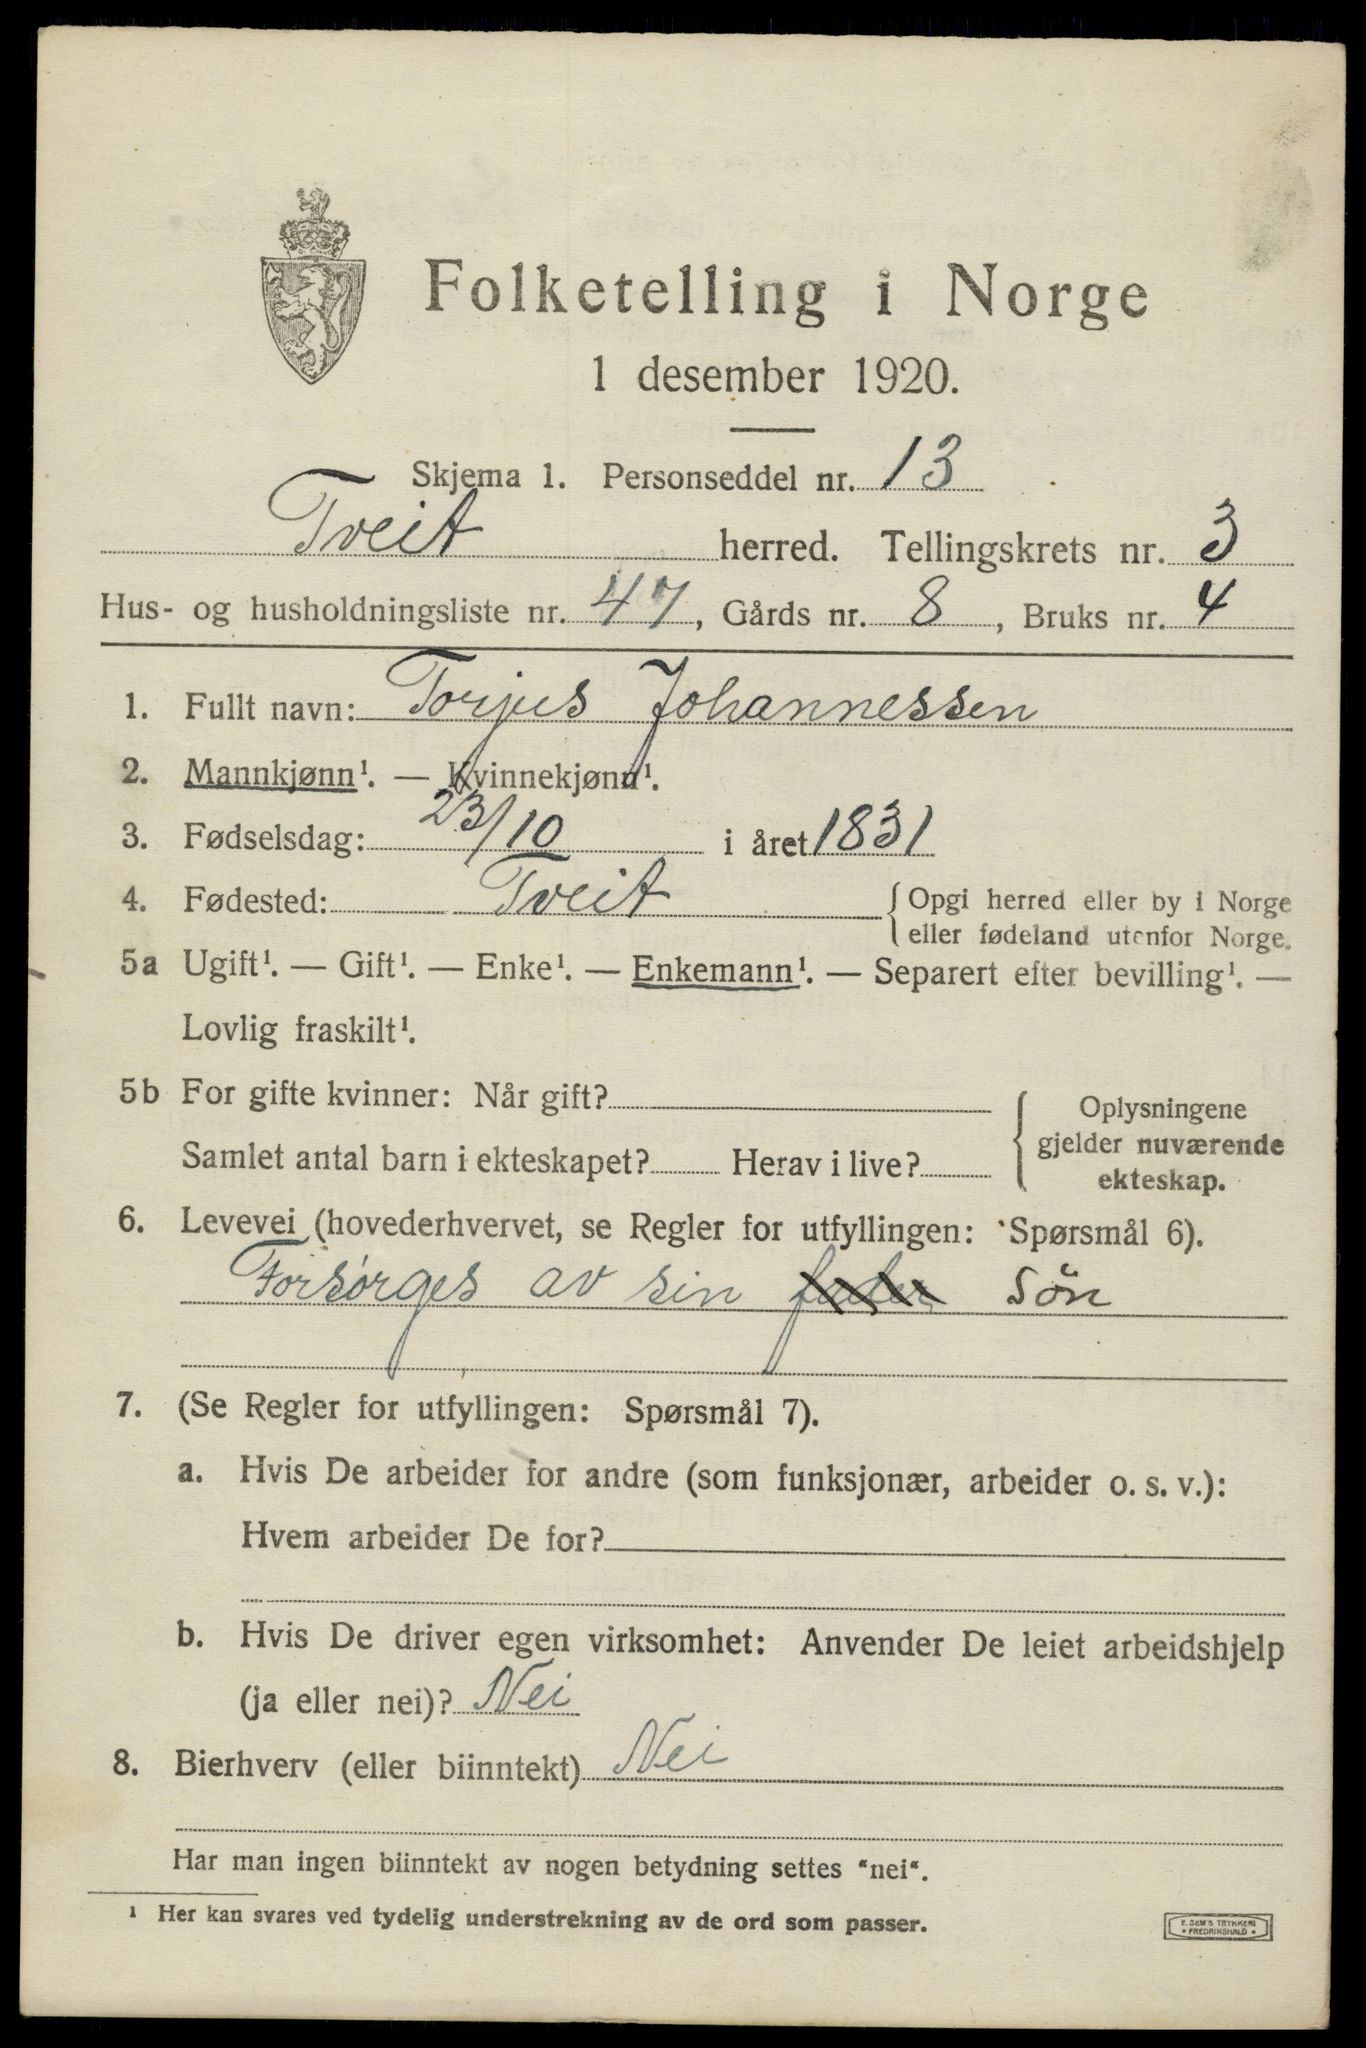 Folketelling i Norge
1 desember 1920.
Skjema 1. Personseddel nr. 13
Tveit herred. Tellingskrets nr. 3
Hus- og husholdningsliste nr. 47, Gårds nr. 8, Bruks nr. 4
1. Fullt navn: Torjus Johannessen
2. Mannkjønn¹. — Kvinnekjønn¹.
3. Fødselsdag: 23/10 i året 1831
4. Fødested: Tveit {Opgi herred eller by i Norge
eller fødeland utenfor Norge.
5a Ugift¹. — Gift¹. — Enke¹. — Enkemann¹. — Separert efter bevilling¹. —
Lovlig fraskilt¹.
5b For gifte kvinner: Når gift?
Samlet antal barn i ekteskapet? Herav i live?
{Oplysningene
gjelder nuværende
ekteskap.
6. Levevei (hovederhvervet, se Regler for utfyllingen: Spørsmål 6).
Forsørges av sin fader Søn
7. (Se Regler for utfyllingen: Spørsmål 7).
a. Hvis De arbeider for andre (som funksjonær, arbeider o. s. v.):
Hvem arbeider De for?
b. Hvis De driver egen virksomhet: Anvender De leiet arbeidshjelp
(ja eller nei)? Nei
8. Bierhverv (eller biinntekt) Nei
Har man ingen biinntekt av nogen betydning settes "nei".
¹ Her kan svares ved tydelig understrekning av de ord som passer.
E. SEM'S TRYKKERI
• FREDRIKSHALD •